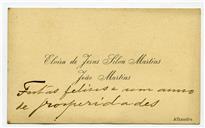 Eloisa de Jesus Silva Martins
João Martins
Festas felizes e um anno
de prosperidades
Alhandra